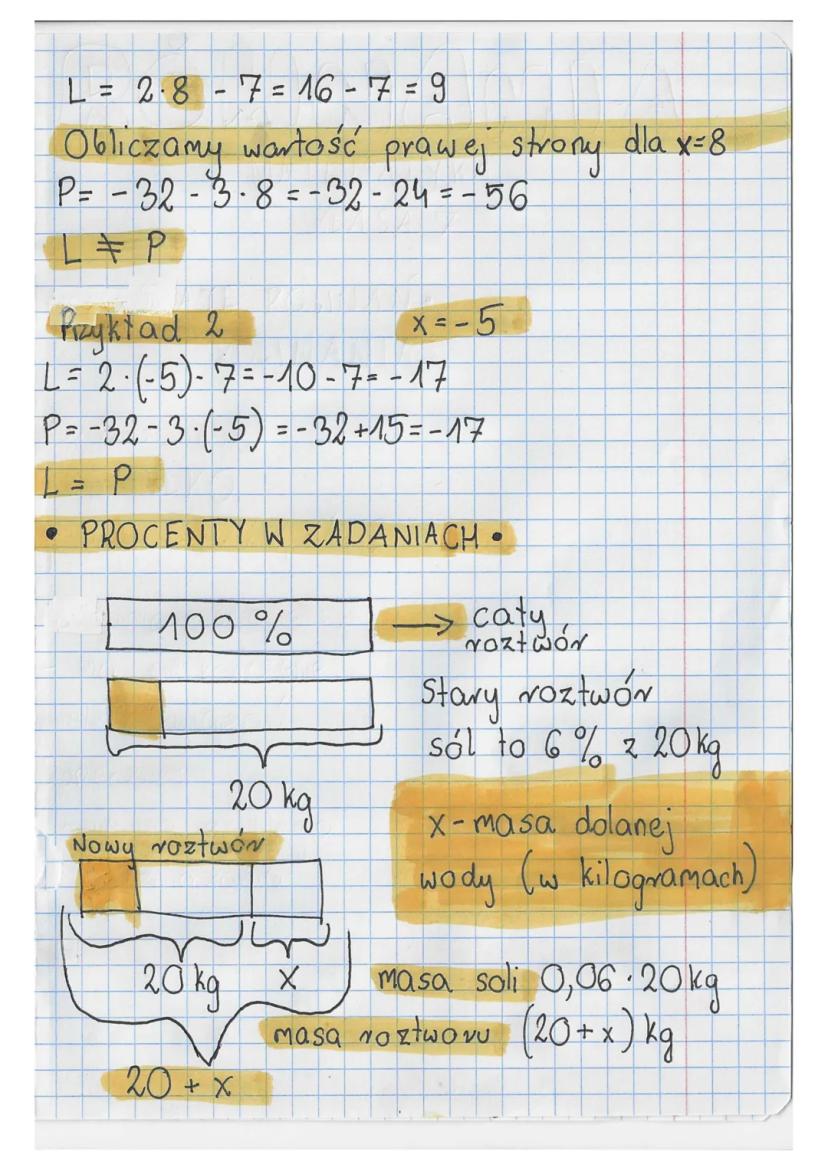 L = 2·8 - 7 = 16 - 7 = 9
Obliczamy wartość prawej strony dla x=8
P= -32 - 3·8 = -32 - 24 = -56
L ≠ P
Przykład 2 x = -5
L = 2·(-5)- 7 = -10 - 7 = -17
P = -32 - 3·(-5) = -32 + 15 = -17
L = P
• PROCENTY W ZADANIACH •
100 % → cały
roztwór
Stary roztwór
sól to 6 % z 20 kg
20 kg
x - masa dolanej
wody (w kilogramach)
Nowy roztwór
20 kg x
masa soli 0,06 · 20 kg
masa roztworu (20 + x) kg
20 + x